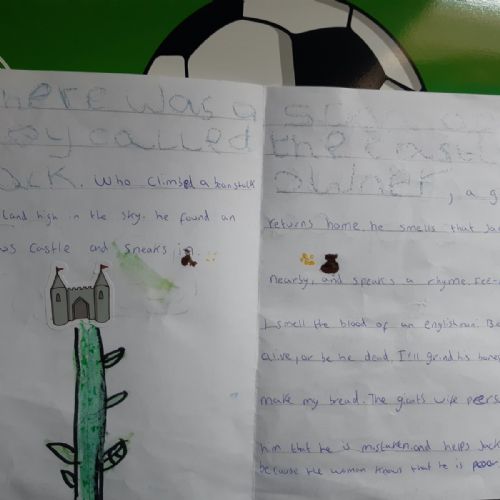 here was a
oy called
ack. Who climbed a beanstalk
Land high in the sky. he found an
ous castle and sneaks in.
the cast
owner, a g
returns home, he smells that Jac
nearby, and speaks a rhyme. Fee-
I smell the blood of an englishman: Be
alive, or be he dead, I'll grind his bones
make my bread. The giants wife pers
him that he is mistaken and helps Jack
because the woman knows that he is poor